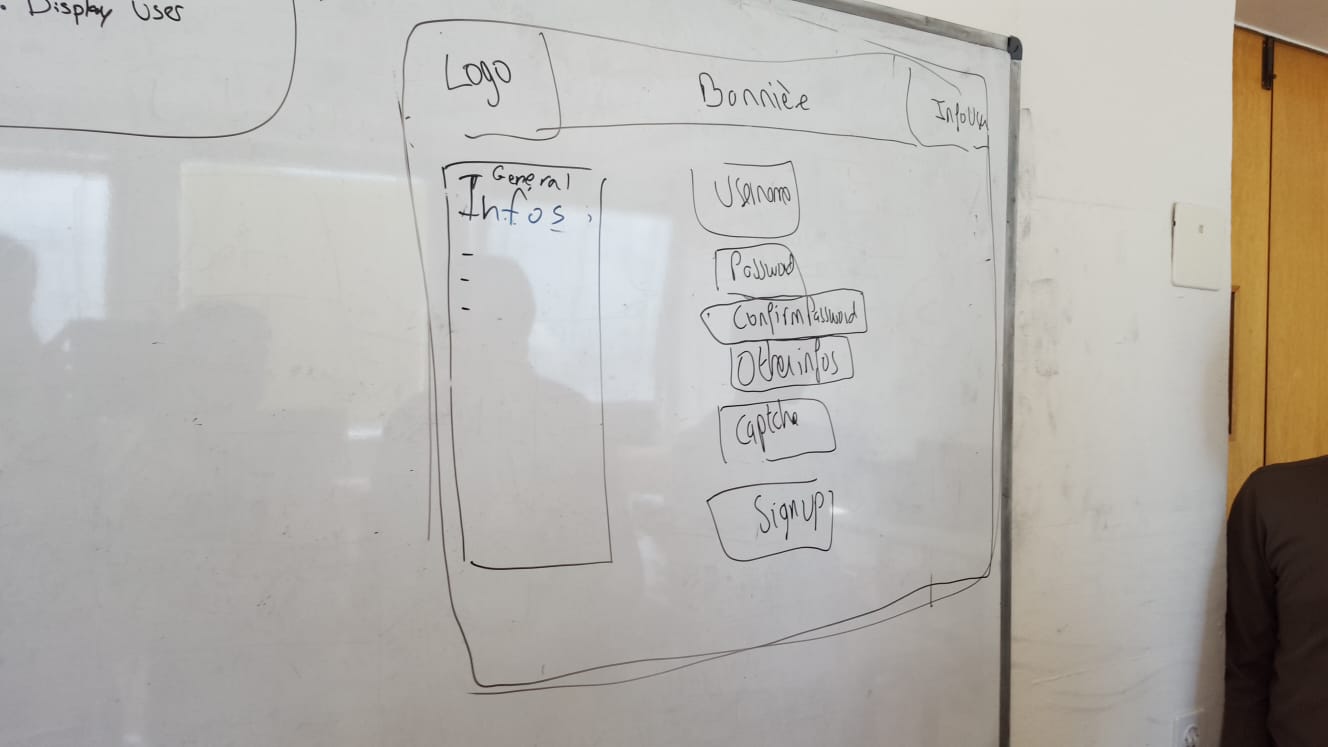 . Display User
Logo
Bannière
InfoUser
General
Infos :
-
-
-
Username
Password
Confirm Password
Other infos
Captcha
Sign up